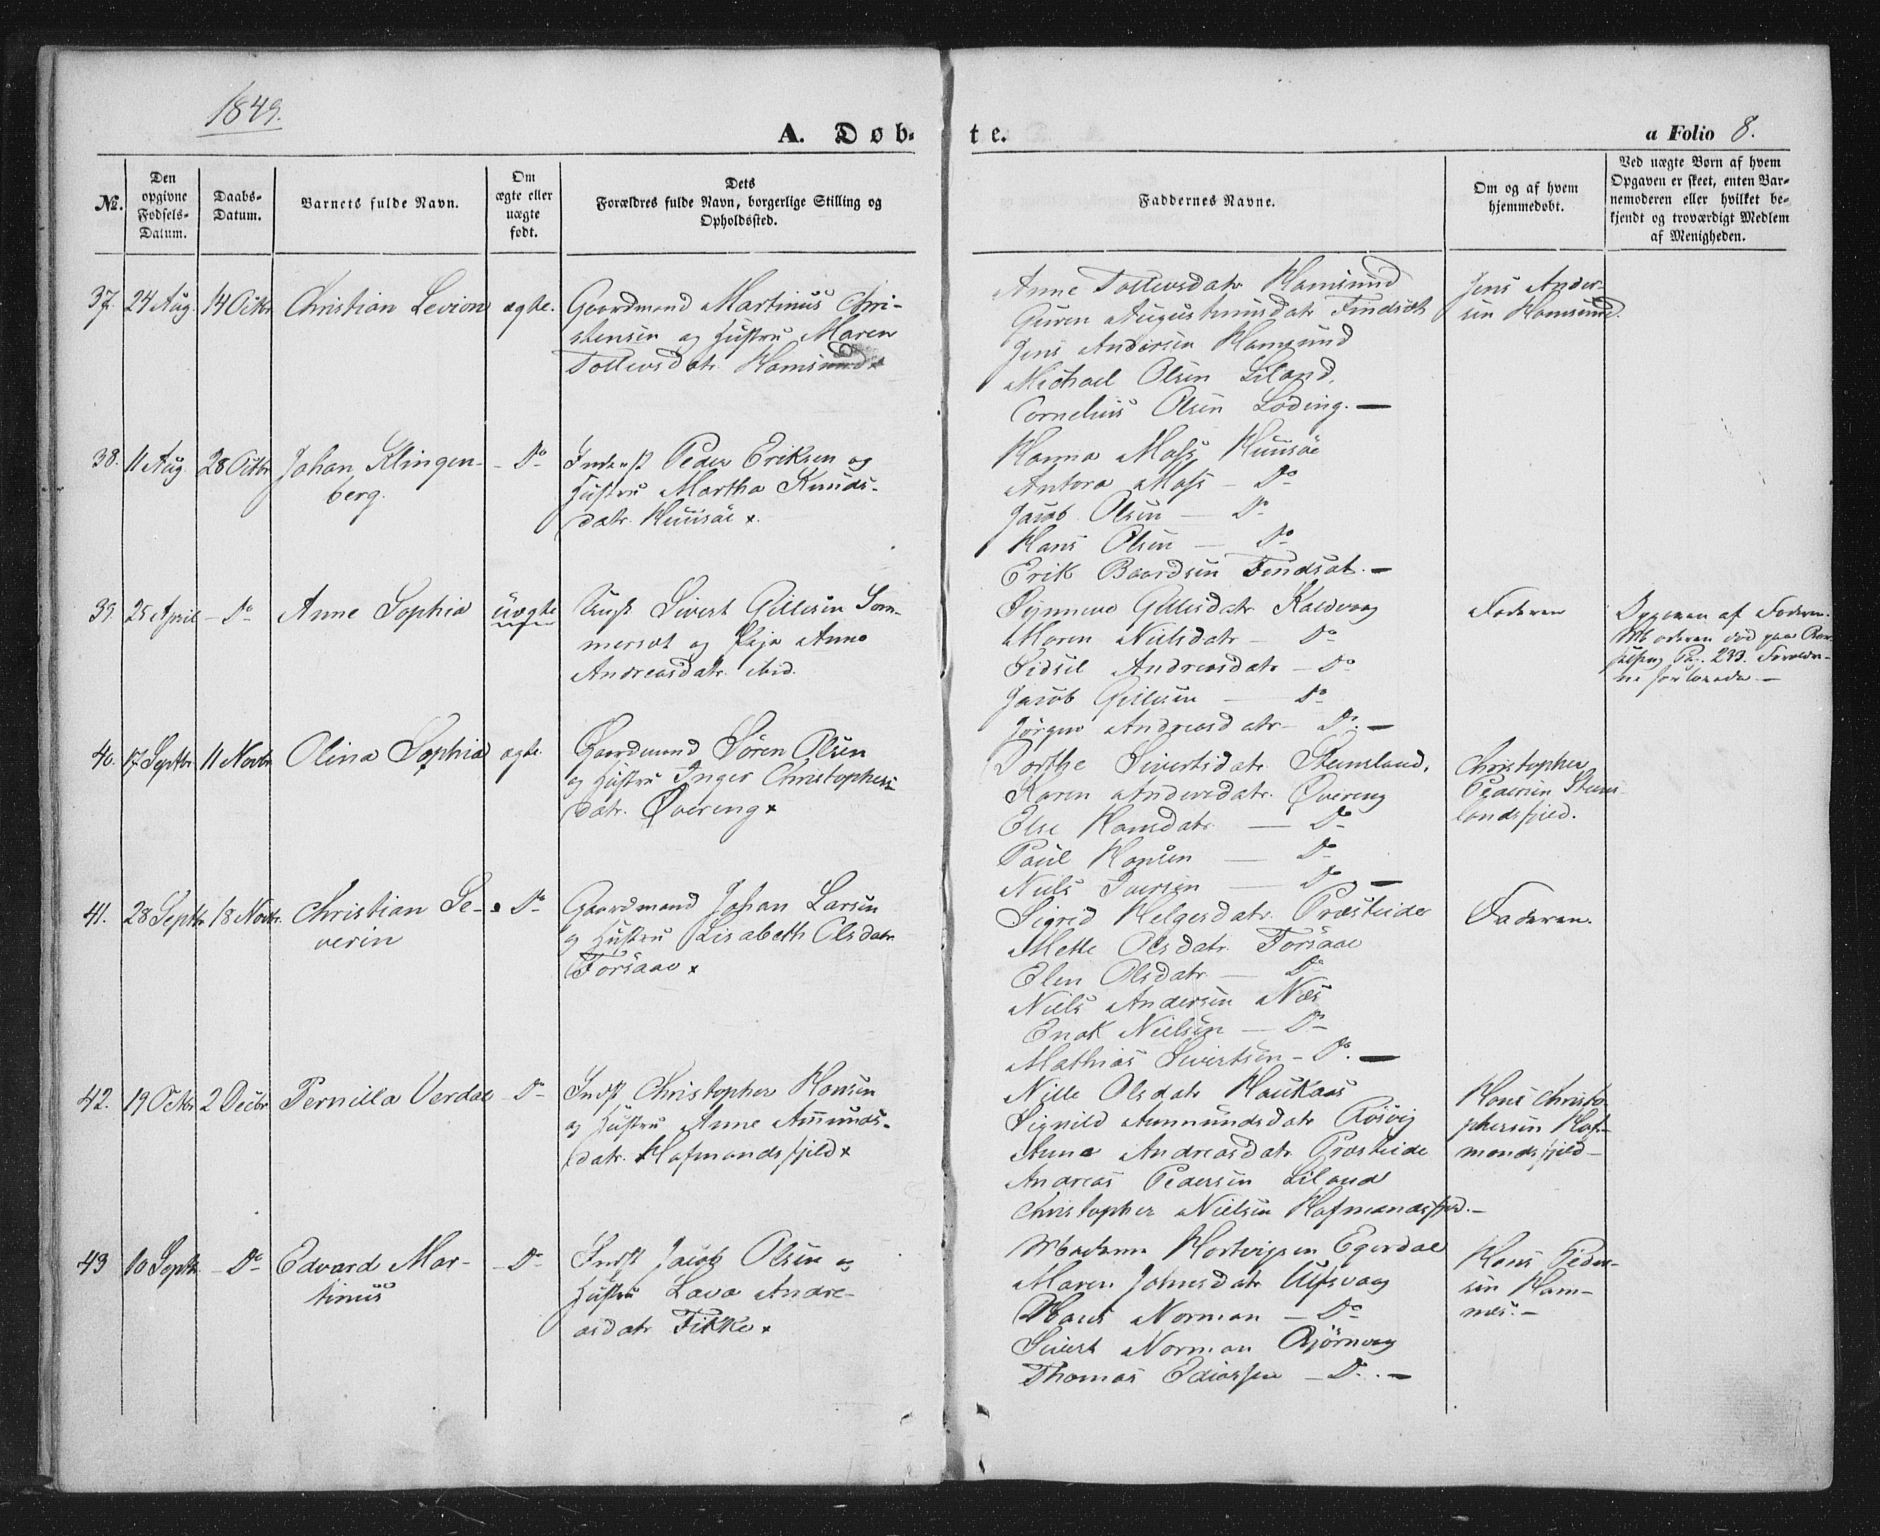 1849.
A. Døb-
te.
a Folio 8.
No.
Den
opgivne
Fødsels-
Datum.
Daabs-
Datum.
Barnets fulde Navn.
Om
ægte eller
uægte
født.
Dets
Forældres fulde Navn, borgerlige Stilling og
Opholdssted.
Faddernes Navne.
Om og af hvem
hjemmedøbt.
Ved uægte Børn af hvem
Opgaven er skeet, enten Bar-
nemoderen eller hvilket be-
kjendt og troværdigt Medlem
af Menigheden.
37. 24 Aug. 14 Octbr Christian Levion ægte.
Gaardmand Martinus Chri-
stensen og Hustru Maren
Tollevsdatr Hamsund x
Anne Tollevsdatr Hamsund
Guren Augustinusdatr Findsæt
Jens Andersen Hamsund
Michael Olsen Liland,
Cornelius Olsen Løding. —
Jens Ander-
sen Hamsund.
38. 11 Aug 28 Octbr Johan Klingen-
berg.
- Do
Inderst Peder Eriksen og
Hustru Martha Knuds-
datr. Huusöe x.
Hanna Moss Huusöe
Antora Moss - Do
Jacob Olsen — Do
Hans Olsen — Do
Erik Baardsen Findsæt. —
39. 25 April - Do Anne Sophia uægte
Ungk Sivert Gillesen Som-
mersæt og Pige Anne
Andreasdatr. ibid.
Synneve Gillesdatr Kaldvaag
Maren Nielsdatr - Do
Sidsel Andreasdatr - Do
Jacob Gillesen — Do
Jørgen Andreasdatr - Do. —
Faderen
Opgaven af Faderen.
Moderen død paa
Pa. 233.
40. 17 Septbr 11 Novbr Olina Sophia ægte.
Gaardmand Søren Olsen
og Hustru Inger Christophers
datr. Øvereng x
Dorthe Sivertsdatr. Stemsland,
Karen Andersdatr. Øvereng
Else Hansdatr. — Do
Paul Hansen — Do
Niels Iversen — Do —
Christopher
Pedersen Stems-
landsfjeld.
41. 28 Septbr 18 Novbr. Christian Se-
verin
- Do
Gaardmand Johan Larsen
og Hustru Lisabeth Olsdatr
Forsaae x
Sigrid Helgesdatr. Præsteide
Mette Olsdatr. Forsaae
Elen Olsdatr — Do
Niels Andersen Næs
Enok Nielsen — Do
Mathias Sivertsen - Do. —
Faderen.
42. 19 Octbr 2 Decbr Pernilla Verdal - Do
Indst Christopher Hansen
og Hustru Anne Ammunds-
datr. Hafmandsfjeld x
Nille Olsdatr Haukaas
Signild Ammundsdatr Røsvig
Andreasdatr Præsteide
Andreas Pedersen Liland
Christopher Nielsen Hafmandsfjeld. —
Hans Christo-
phersen Haf-
mandsfjeld —
43 10 Septbr - Do Edvard Mar-
tinus
- Do
Indst Jacob Olsen og
Hustru Lava Andre-
asdatr Fikke x
Madame Hartvigsen Egerdal
Maren Johnsdatr Ulfsvaag
Hans Norman - Do
Sivert Norman Bjørnvaag
Thomas - Do. —
Hans Peder-
sen Ham-
nes. —